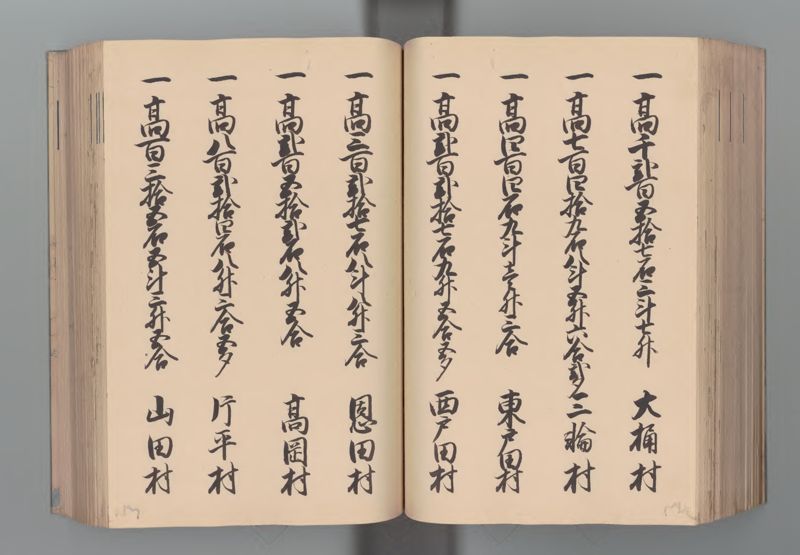 一 高千弐百五拾七石二斗七升 大桶村
一 高七百四拾九石八斗五升六合弐夕 三輪村
一 高四百四石九斗壱升二合 東戸田村
一 高弐百弐拾七石九升五合五夕 西戸田村
一 高三百弐拾七石八斗八升三合 恩田村
一 高弐百五拾弐石八升五合 高岡村
一 高八百弐拾四石八升二合五夕 片平村
一 高百三拾五石五斗三升五合 山田村